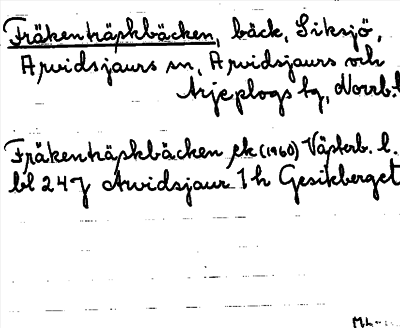 Fräkenträskbäcken, bäck, Siksjö,
Arvidsjaurs sn, Arvidsjaurs och
Arjeplogs tg, Norrb.l
Fräkenträskbäcken ek (1960) Västerb. l.
bl 24 J Arvidsjaur 1 h Gesikberget